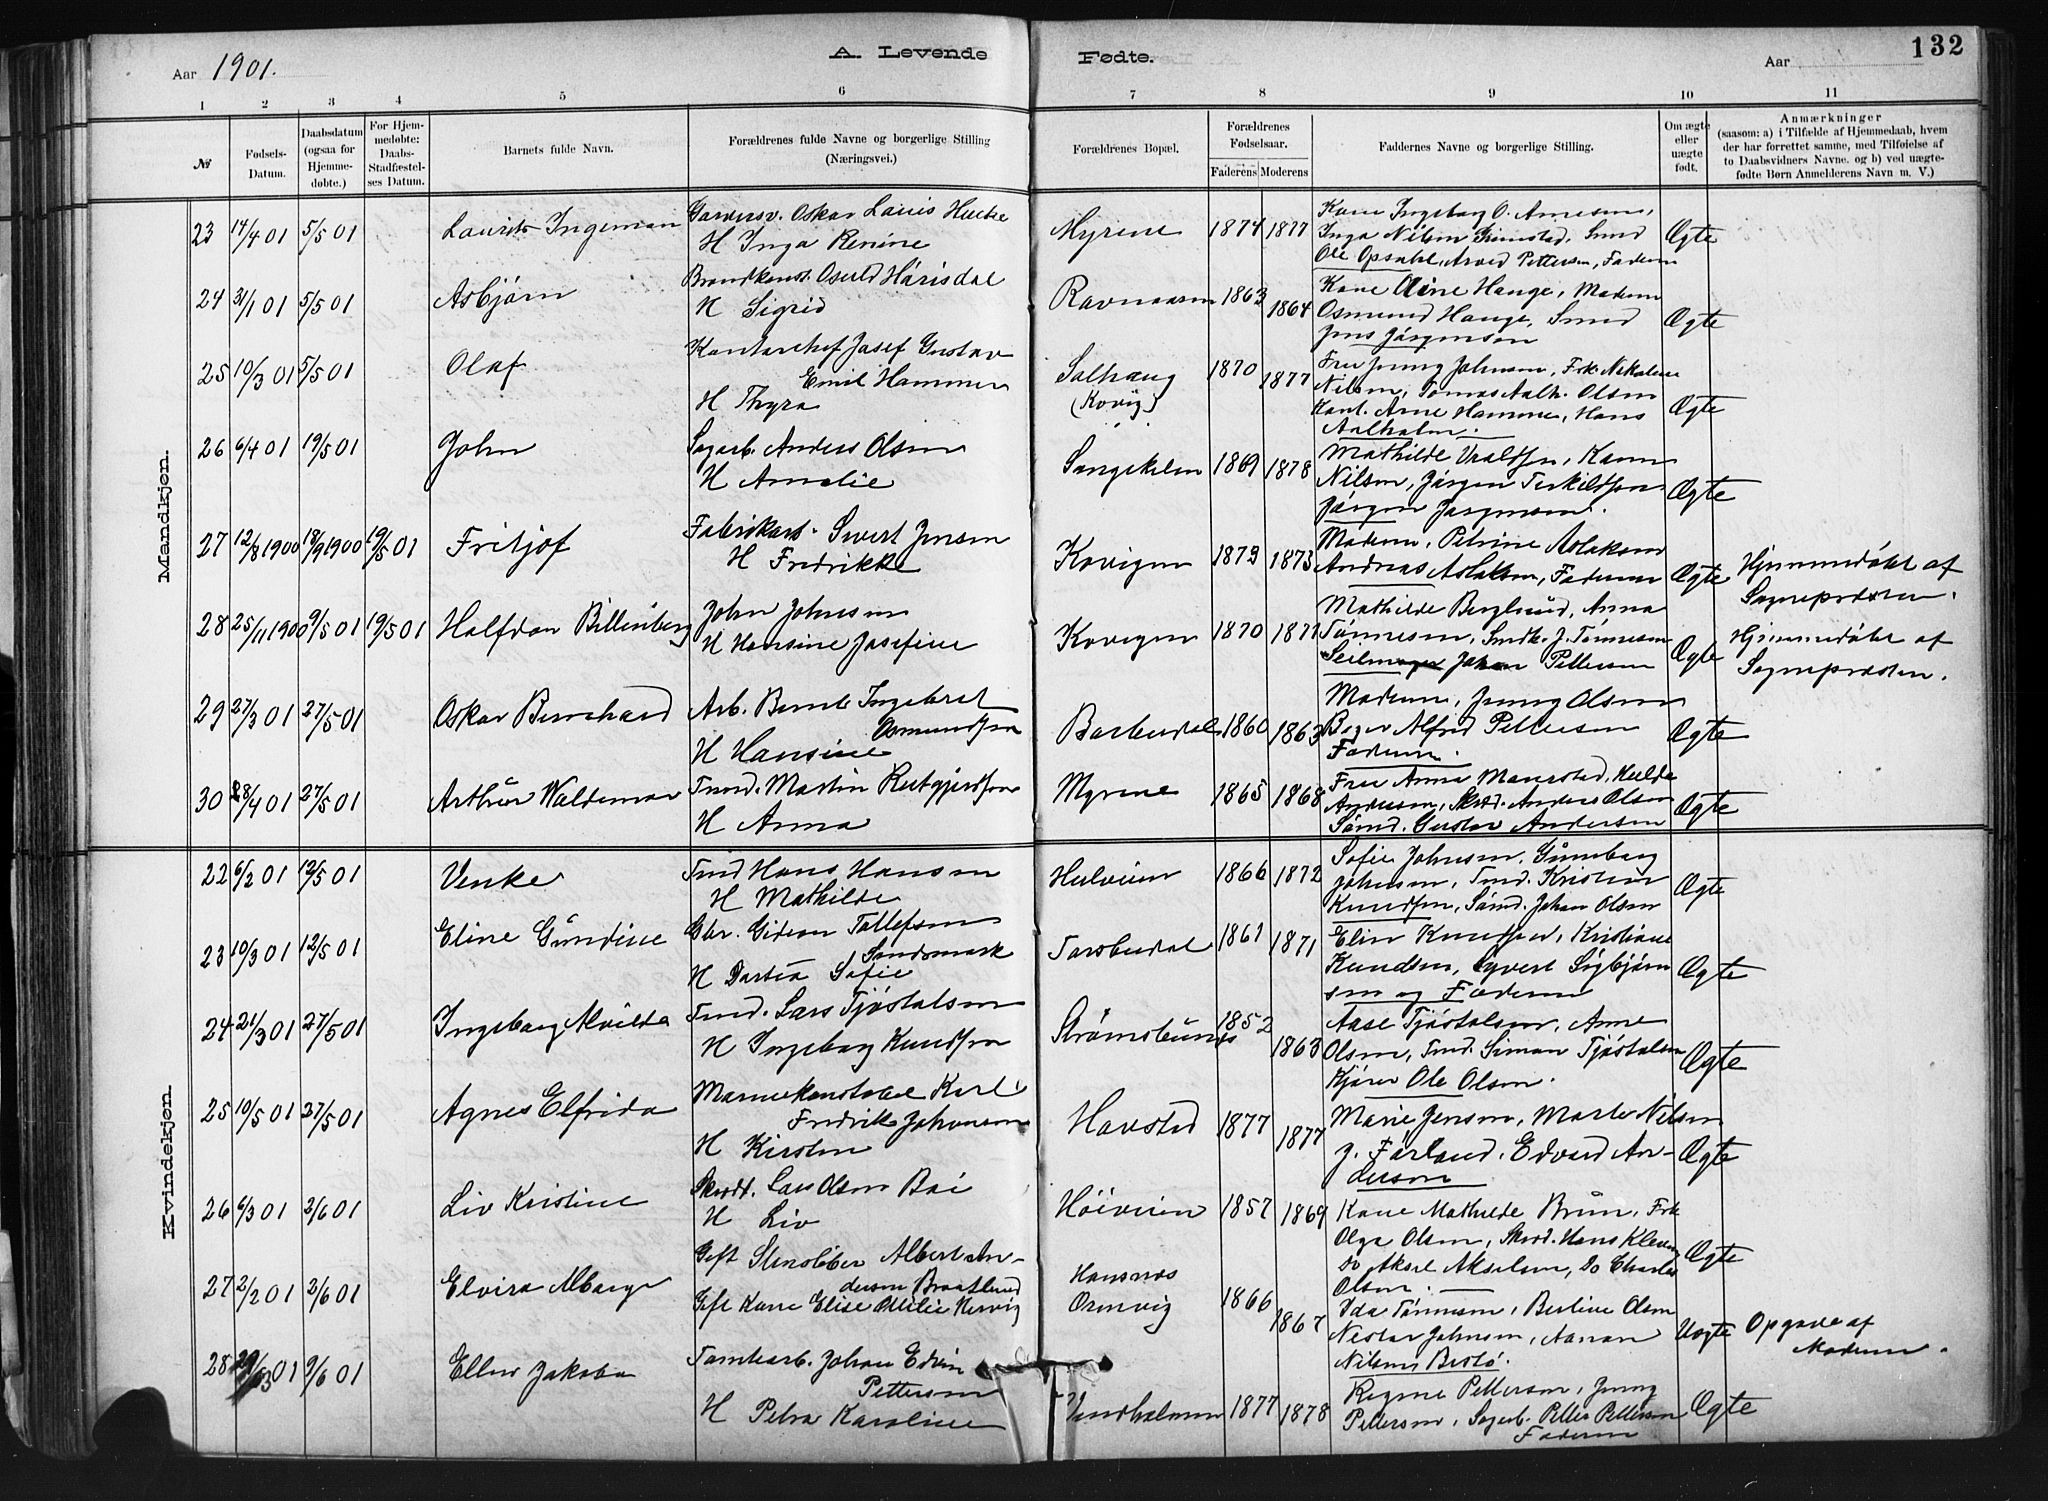 Aar 1901.
A. Levende Fødte.
Aar
132
1 2 3 4 5 6 7 8 9 10 11
№
Fødsels-Datum.
Daabsdatum (ogsaa for Hjemmedøbte.)
For Hjemmedøbte: Daabs-Stadfæstelses Datum.
Barnets fulde Navn.
Forældrenes fulde Navne og borgerlige Stilling (Næringsvei.)
Forældrenes Bopæl.
Forældrenes Fødselsaar.
Faderens Moderens
Faddernes Navne og borgerlige Stilling.
Om ægte eller uægte født.
Anmærkninger
(saasom: a) i Tilfælde af Hjemmedaab, hvem der har forrettet samme, med Tilføielse af to Daabsvidners Navne. og b) ved uægtefødte Børn Anmelderens Navn m. V.)
Mandkjøn.
23 14/4 01 5/5 01 Laurits Ingeman
Oskar Louis
H Inga Renine
Myrene 1874 1877
Kone Ingeborg O.
Inga Nilsen Grimstad,
Ole Opsahl, Arved Pettersen, Faderen
Ægte
24 31/1 01 5/5 01 Asbjørn
H Sigrid
Ravnaasen 1863 1864
Kone Oline Hauge, Moderen
Osmund Hauge, Smed
Jens Jørgensen
Ægte
25 10/3 01 5/5 01 Olaf
Kontorchef Josef Gustav
Emil Hammer
H Thyra
Solhaug
(Kovig)
1870 1877
Fru Jenny Johnsen, Frk. Nikoline
Nilsen, Tomas Aalh. Olsen
Kont. Arne Hammer, Hans
Aalholm.
Ægte
26 6/4 01 19/5 01 John
Sagarb. Anders Olsen
H Amalie
Songekilen 1869 1878
Mathilde
Nilsen, Jørgen Terkildsen
Jørgen Jørgensen.
Ægte
27 12/8 1900 18/9 1900 19/5 01 Fritjof
Fabrikarb. Sivert Jensen
H Fredrikke
Kovigen 1873
Moderen, Petrine Aslaksen
Andreas Aslaksen, Faderen
Ægte
Hjemmedøbt af
Sognepræsten.
28 25/11 1900 9/5 01 19/5 01 Halfdan Billenberg
John Johnsen
H Hansine Josefine
Kovigen 1870 1877
Mathilde Berglund, Anna
Tønnesen, J. Tønnesen
Johan Pettersen
Ægte
Hjemmedøbt af
Sognepræsten.
29 27/3 01 27/5 01 Oskar Bernhard
Arb. Bernt Ingebret
Osmundsen
H Hansine
Barbudal 1860 1863
Moderen, Jenny Olsen
Alfred Pettersen
Faderen.
Ægte
30 28/4 01 27/5 01 Arthur Waldemar
Tmd. Martin
H Anna
Myrene 1865 1868
Fru Anna Hulda
Andersen, Anders Olsen
Sømd. Gustav Andersen
Ægte
Kvindekjøn.
22 6/2 01 12/5 01 Venke
Tmd Hans Hansen
H Mathilde
1866 1872
Sofie Johnsen, Gunnborg
Johnsen, Tmd. Kristian
Knudsen, Sømd. Johan Olsen
Ægte
23 10/3 01 12/5 01 Eline Gundine
Gbr. Gideon Tollefsen
Sandsmark
H Dortea Sofie
Torsbudal 1861 1871
Elin Knudsen, Kristiane
Knudsen, Syvert Sigbjørn
sen og Faderen
Ægte
24 21/3 01 27/5 01 Ingeborg Alvilde
Tmd. Lars Tjøstolsen
H Ingeborg Knudsen
Strømsbunes 1852 1863
Aase Tjøstolsen, Anne
Olsen, Tmd. Simon Tjøstolsen
Kjører Ole Olsen.
Ægte
25 10/5 01 27/5 01 Agnes Elfrida
Karl
Fredrik Johnsen
H Kirsten
Havstad 1877 1877
Marie Jensen, Marte Nilsen
J. Førland, Edvard An-
dersen
Ægte
26 6/3 01 2/6 01 Liv Kristine
Skrædd. Lars Olsen Bøi
H Liv
Høiveien 1857 1869
Kone Mathilde Brun, Frk
Olga Olsen, Skræd. Hans
Do Aksel Akselsen, Do Charles
Olsen.
Ægte
27 2/2 01 2/6 01 Elvira
Gift Albert An-
dersen Braatlund
Gift Kone Elise Ottilie Hervig
Hansnæs
Ormvig
1866 1867
Ida Tønnesen, Berline Olsen
Nestor Johnsen, Aanon
Nilsen
Uægte
Opgave af
Moderen.
28 01 9/6 01 Ellen Jakoba
Tomtearb. Johan Edvin
Pettersen
H Petra Karoline
Vindholmen 1877 1878
Regine Pettersen, Jenny
Pettersen, Sagarb. Petter Pettersen
Faderen
Ægte